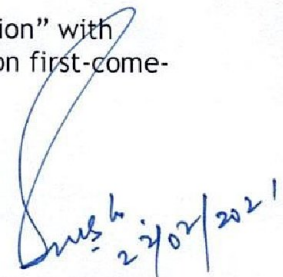 ion” with
on first-come-
22/02/2021